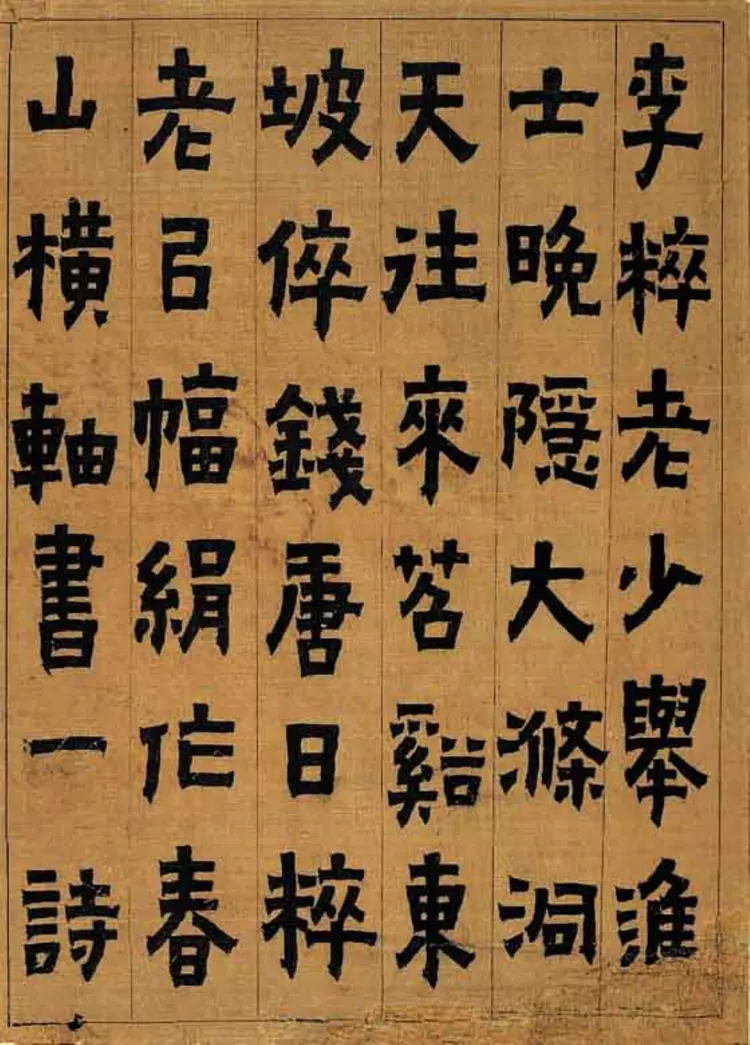 李粹老少舉進
士晚隱大滌洞
天往來苕谿東
坡倅錢唐日粹
老㠯幅絹作春
山橫軸書一詩